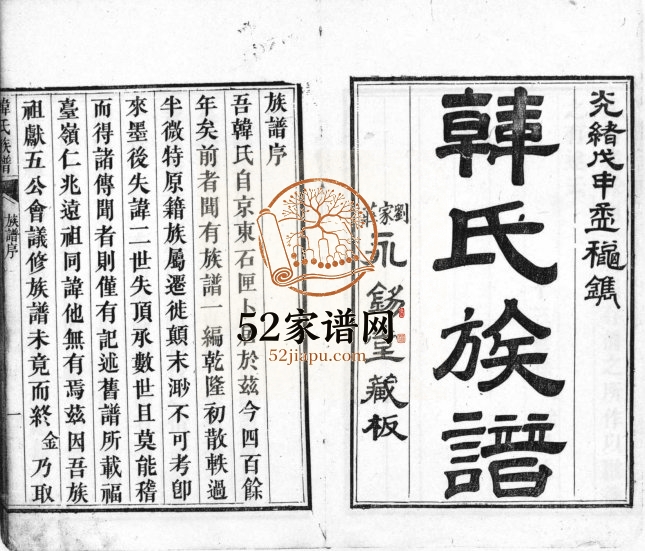 光緒戊申孟龝鐫
韓氏族譜
劉家
永錫堂藏板
族譜序
吾韓氏自京東石匣卜於茲今四百餘
年矣前者聞有族譜一編乾隆初散軼過
半微特原籍族屬遷徙顛末渺不可考卽
來墨後失諱二世失頂承數世且莫能稽
而得諸傳聞者則僅有記述舊譜所載福
臺嶺仁兆遠祖同諱他無有焉茲因吾族
祖獻五公會議修族譜未竟而終金乃取
韓氏族譜
族譜序
一
52家谱网
52jiapu.com